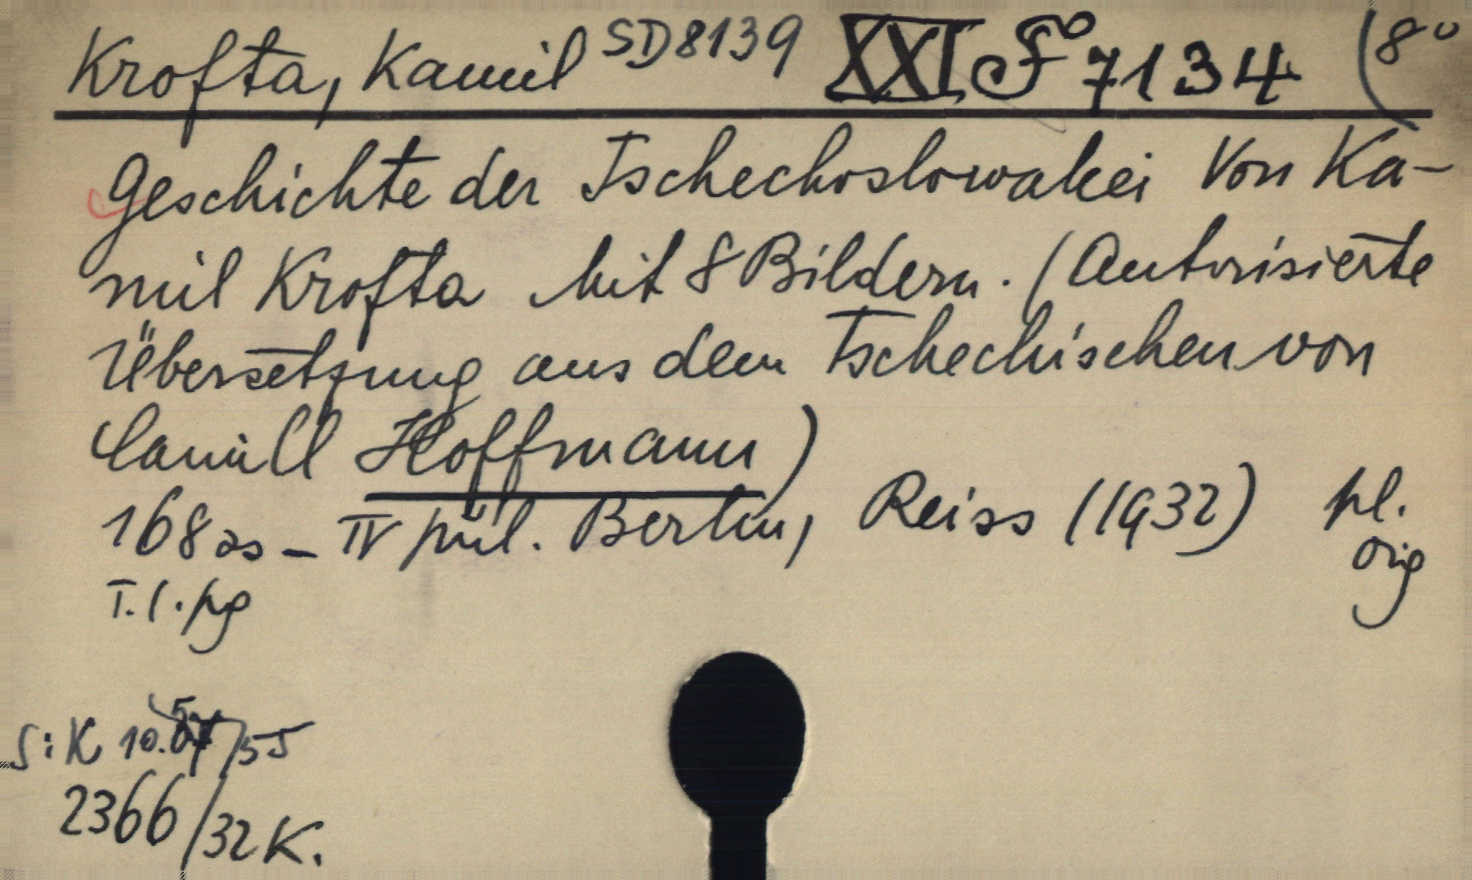 Krofta, Kamil SD8139 XXI F° 7134 (8°
Geschichte der Tschechoslowakei Von Ka-
mil Krofta Mit 8 Bildern. (Autorisierte
Übersetzung aus dem Tschechischen von
Camill Hoffmann)
168 ss - IV příl. Berlin, Reiss (1932) pl.
orig
T.l.pg
S:K 10. /55
2366/32K.